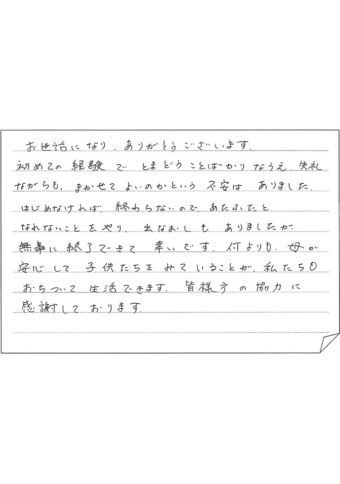 お世話になり、ありがとうございます。
初めての経験でとまどうことばかりなうえ、失礼
ながらも、まかせてよいのかという不安はありました。
はじめなければ、終わらないので、あたふたと
なれないことをやり、出なおしもありましたが、
無事に終了できて幸いです。何よりも、母が
安心して子供たちをみていることが、私たちも
おちついて生活できます。皆様方の協力に
感謝しております。